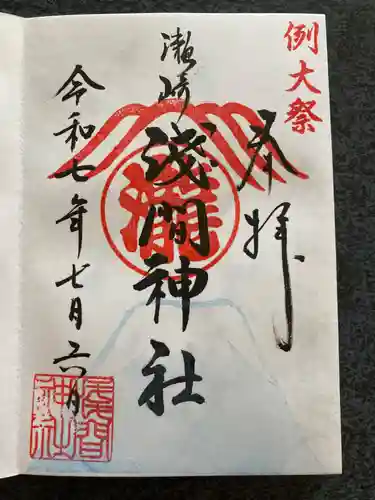 例大祭
奉拝
瀬崎
浅間神社
令和七年七月六日
浅間
神社